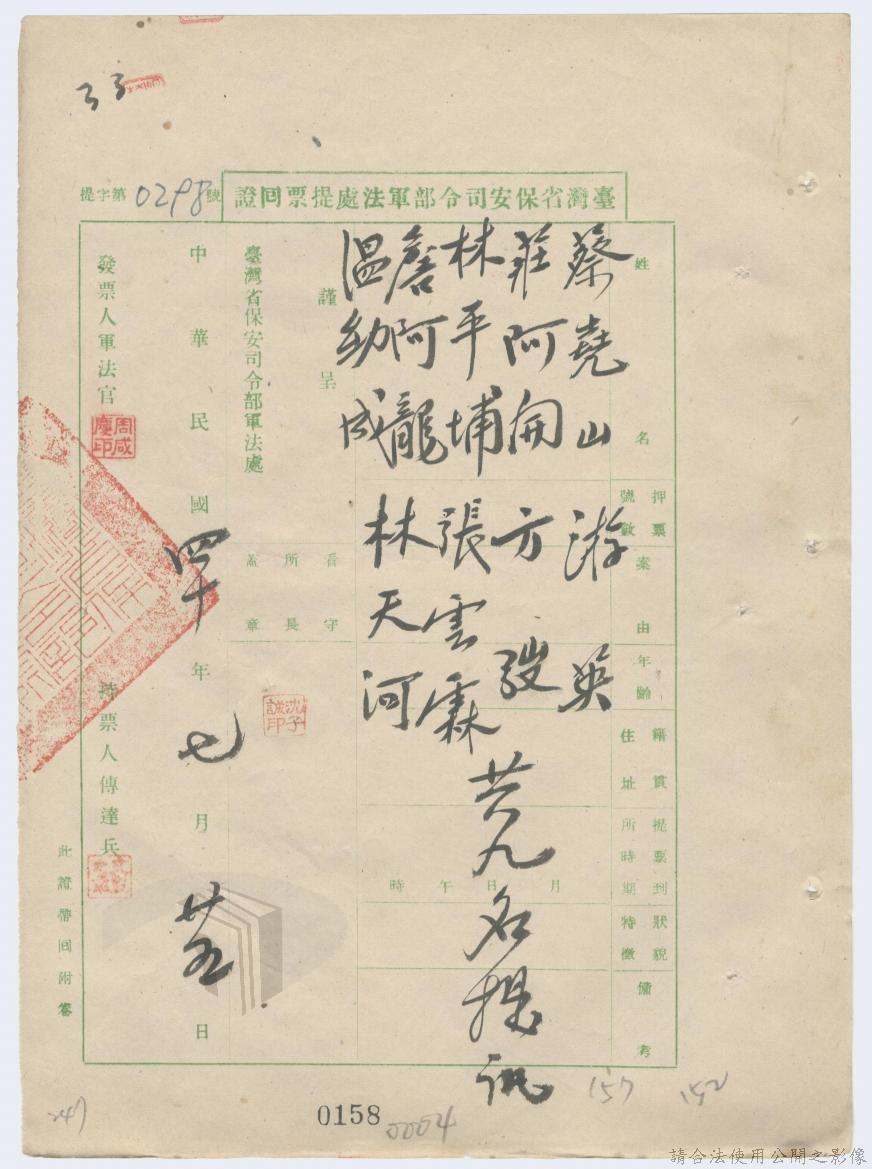 33
臺灣省保安司令部軍法處提票回證
提字第0298號
姓名
押票號數
案由
年齡
籍貫住址
提票到所時期
狀貌特徵
備考
蔡堯山 游英
莊阿開 方
林平埔 張雲霖
詹阿龍 林天河
溫幼成
共九名提訊
月日午時
謹呈
臺灣省保安司令部軍法處
看守所長蓋章
沈子誠印
中華民國四十年七月廿五日
發票人軍法官
周咸慶印
持票人傳達兵
此證帶回附卷
157
152
247
0158
0004
請合法使用公開之影像